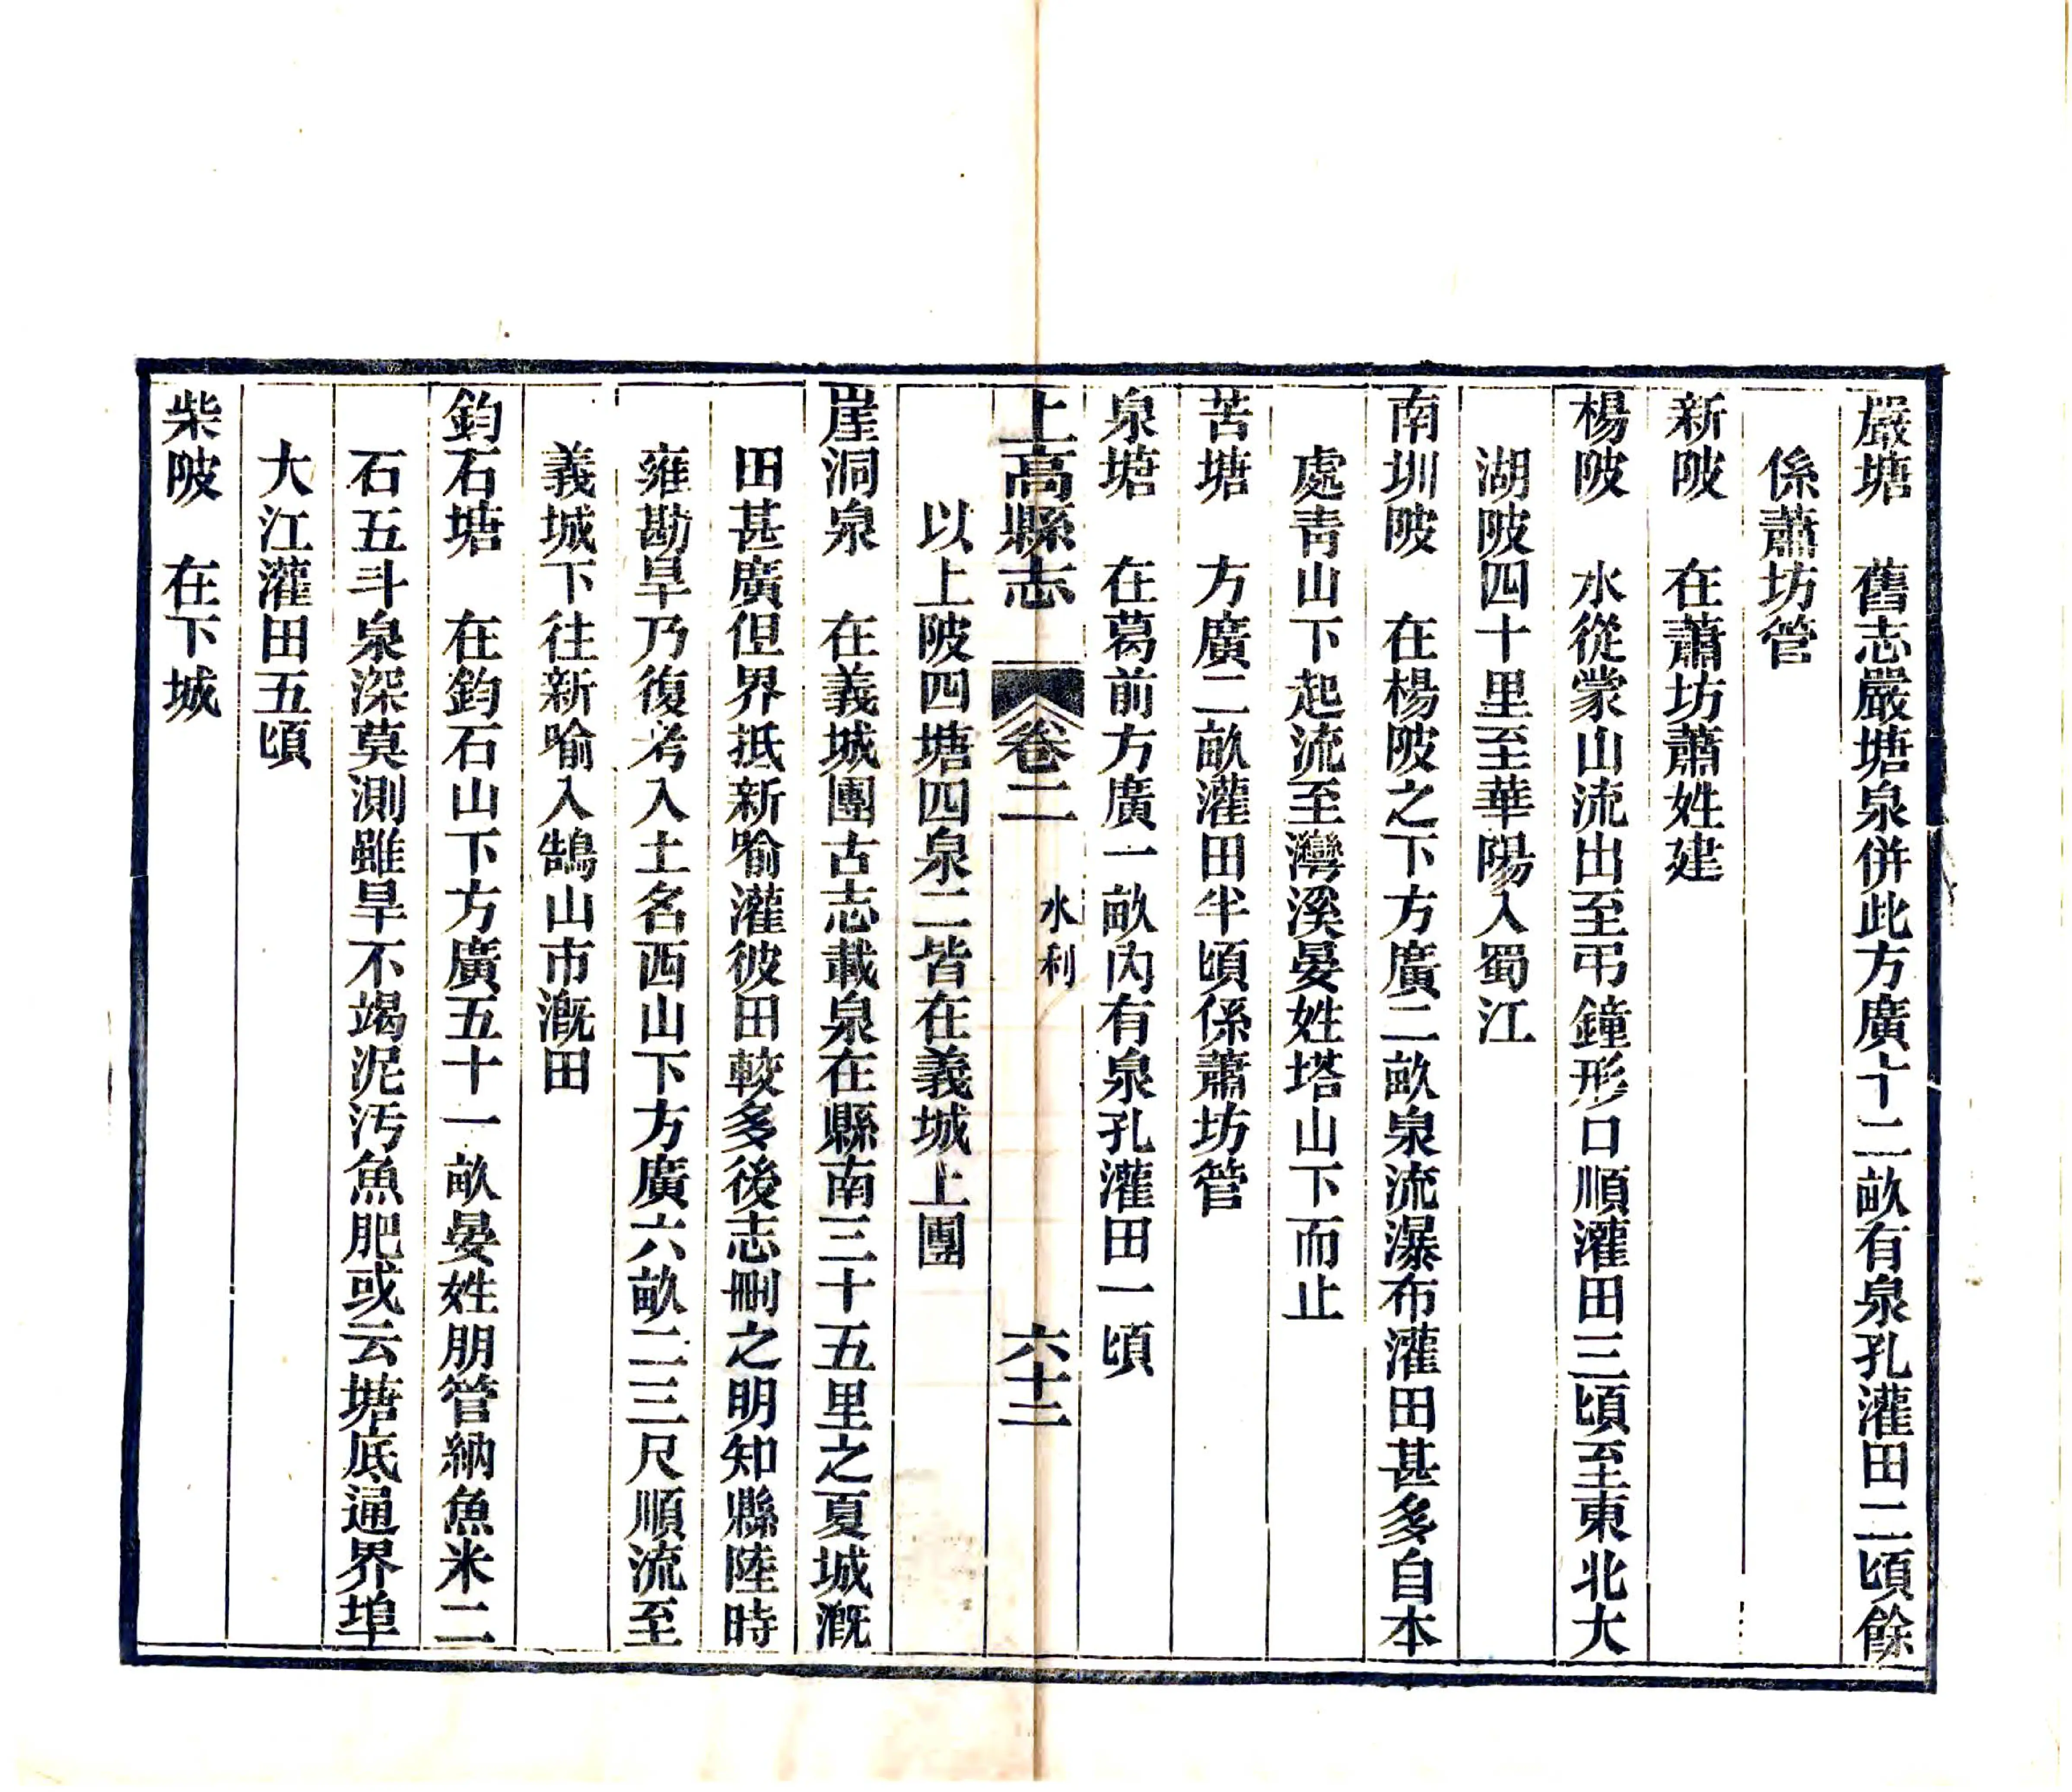 嚴塘　舊志嚴塘泉併此方廣十二畝有泉孔灌田二頃餘
係蕭坊管
新陂　在蕭坊蕭姓建
楊陂　水從蒙山流出至弔鐘形口順灌田三頃至東北大
湖陂四十里至華陽入蜀江
南圳陂　在楊陂之下方廣二畝泉流瀑布灌田甚多自本
處青山下起流至灣溪晏姓塔山下而止
苦塘　方廣二畝灌田半頃係蕭坊管
泉塘　在葛前方廣一畝內有泉孔灌田一頃
上高縣志　卷二　水利　六十二
以上陂四塘四泉二皆在義城上團
崖洞泉　在義城團古志載泉在縣南三十五里之夏城漑
田甚廣但界抵新喻灌彼田較多後志刪之明知縣陸時
雍勘旱乃復考入土名西山下方廣六畝二三尺順流至
義城下往新喻入鵠山市漑田
鈞石塘　在鈞石山下方廣五十一畝晏姓朋管納魚米二
石五斗泉深莫測雖旱不竭泥汚魚肥或云塘底通界埠
大江灌田五頃
柴陂　在下城